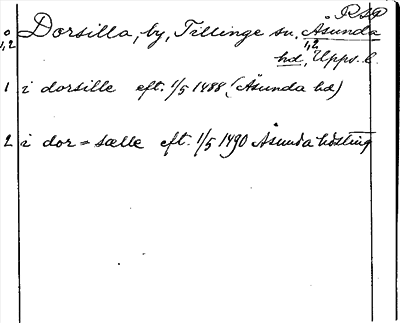 RSP
0 Dorsilla, by, Tillinge sn. Åsunda
1,2 1,2
hd, Upps. l.
1 i dorsille eft. 1/5 1488 (Åsunda hd)
2 i dor=sælle eft. 1/5 1490 Åsunda hösting